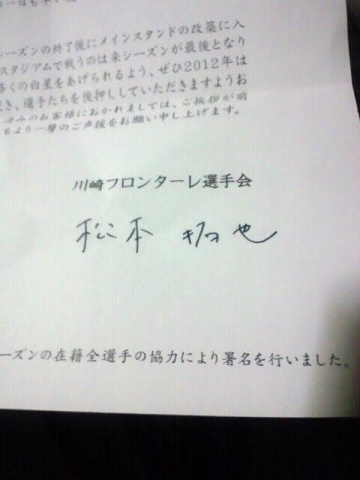 ーズンの終了後にメインスタンドの改築に入
スタジアムで戦うのは来シーズンが最後となり
多くの白星をあげられるよう、ぜひ2012年は
き、選手たちを後押ししていただきますようお
すみのお客様におかれましては、ご挨拶が前
もよう一層のご声援をお願い申し上げます。
川崎フロンターレ選手会
松本 拓也
ーズンの在籍全選手の協力により署名を行いました。